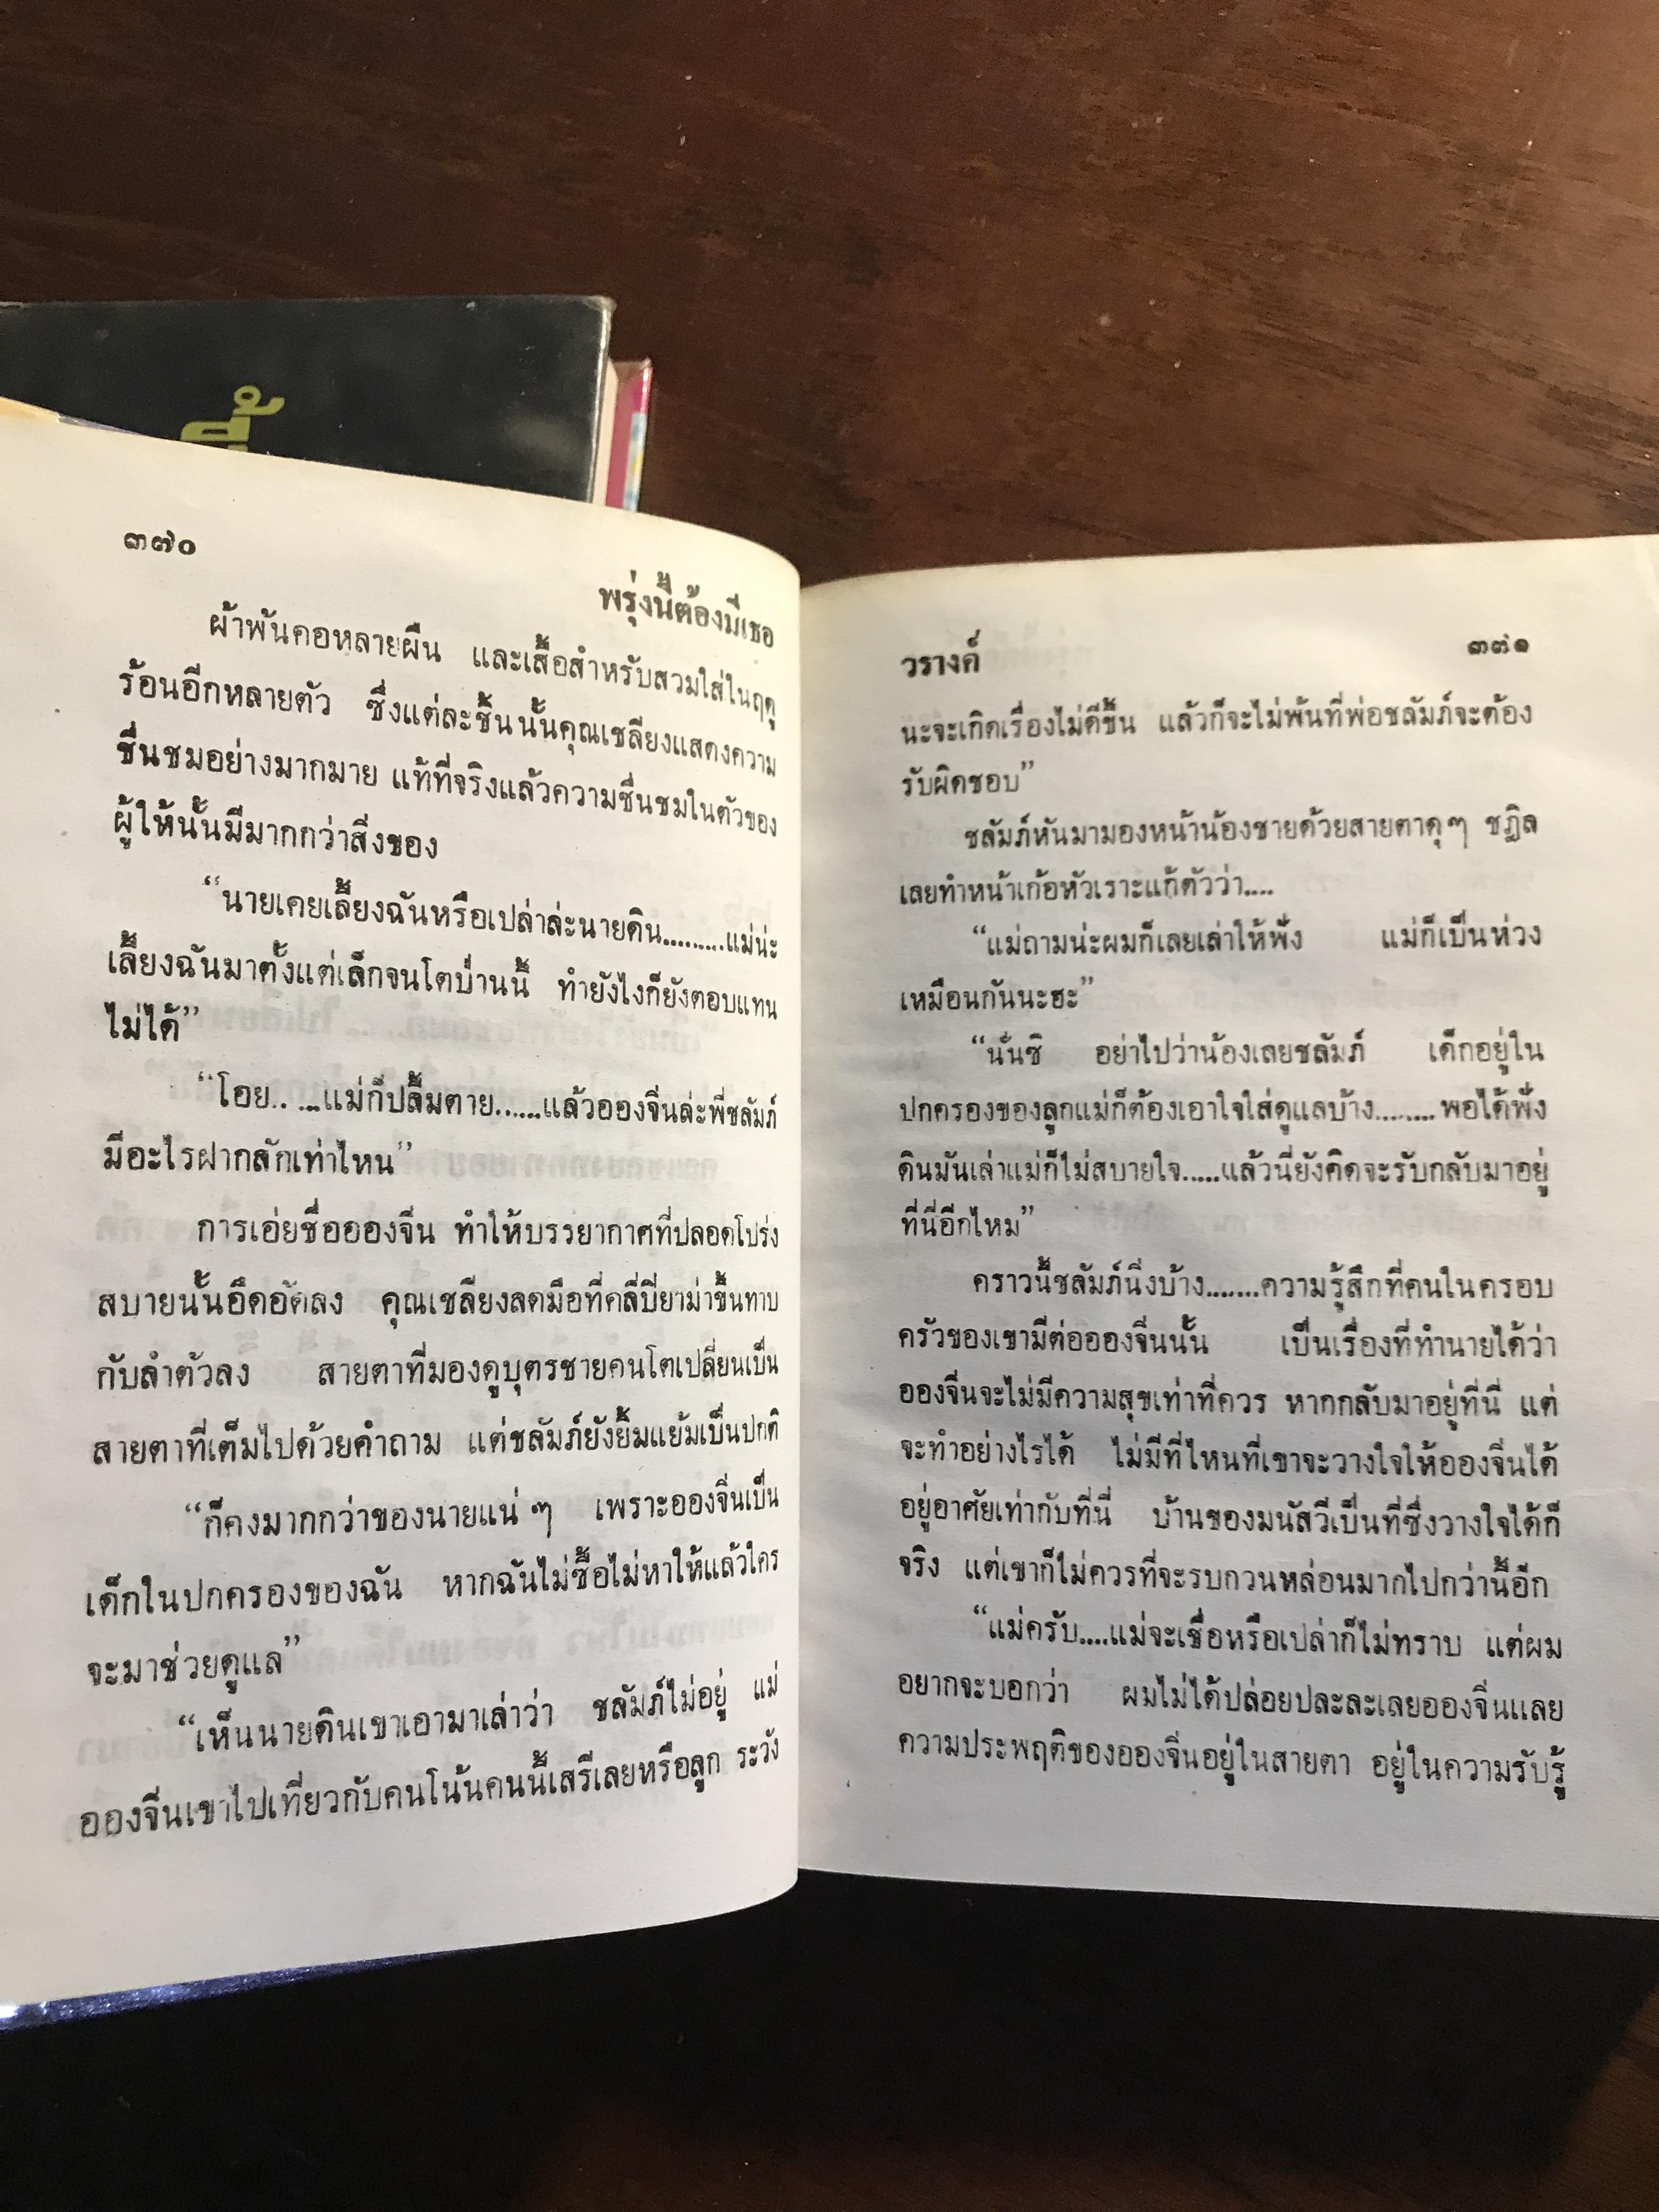 ๓๗๐
พรุ่งนี้ต้องมีเธอ
ผ้าพันคอหลายผืน และเสื้อสำหรับสวมใส่ในฤดู
ร้อนอีกหลายตัว ซึ่งแต่ละชิ้นนั้นคุณเชลียงแสดงความ
ชื่นชมอย่างมากมาย แท้ที่จริงแล้วความชื่นชมในตัวของ
ผู้ให้นั้นมีมากกว่าสิ่งของ
“นายเคยเลี้ยงฉันหรือเปล่าล่ะนายดิน.........แม่น่ะ
เลี้ยงฉันมาตั้งแต่เล็กจนโตป่านนี้ ทำยังไงก็ยังตอบแทน
ไม่ได้”
“โอย.. ...แม่ก็ปลื้มตาย......แล้วอองจิ่นล่ะพี่ชลัมภ์
มีอะไรฝากสักเท่าไหน”
การเอ่ยชื่ออองจิ่น ทำให้บรรยากาศที่ปลอดโปร่ง
สบายนั้นอึดอัดลง คุณเชลียงลดมือที่คลี่บี่ยาม่าขึ้นทาบ
กับลำตัวลง สายตาที่มองดูบุตรชายคนโตเปลี่ยนเป็น
สายตาที่เต็มไปด้วยคำถาม แต่ชลัมภ์ยังยิ้มแย้มเป็นปกติ
“ก็คงมากกว่าของนายแน่ ๆ เพราะอองจิ่นเป็น
เด็กในปกครองของฉัน หากฉันไม่ซื้อไม่หาให้แล้วใคร
จะมาช่วยดูแล”
“เห็นนายดินเขาเอามาเล่าว่า ชลัมภ์ไม่อยู่ แม่
อองจิ่นเขาไปเที่ยวกับคนโน้นคนนี้เสรีเลยหรือลูก ระวัง
วรางค์
๓๗๑
นะจะเกิดเรื่องไม่ดีขึ้น แล้วก็จะไม่พ้นที่พ่อชลัมภ์จะต้อง
รับผิดชอบ”
ชลัมภ์หันมามองหน้าน้องชายด้วยสายตาดุๆ ชฎิล
เลยทำหน้าเก้อหัวเราะแก้ตัวว่า....
“แม่ถามน่ะผมก็เลยเล่าให้ฟัง แม่ก็เป็นห่วง
เหมือนกันนะฮะ”
“นั่นซิ อย่าไปว่าน้องเลยชลัมภ์ เด็กอยู่ใน
ปกครองของลูกแม่ก็ต้องเอาใจใส่ดูแลบ้าง........พอได้ฟัง
ดินมันเล่าแม่ก็ไม่สบายใจ.....แล้วนี่ยังคิดจะรับกลับมาอยู่
ที่นี่อีกไหม”
คราวนี้ชลัมภ์นิ่งบ้าง.......ความรู้สึกที่คนในครอบ
ครัวของเขามีต่ออองจิ่นนั้น เป็นเรื่องที่ทำนายได้ว่า
อองจิ่นจะไม่มีความสุขเท่าที่ควร หากกลับมาอยู่ที่นี่ แต่
จะทำอย่างไรได้ ไม่มีที่ไหนที่เขาจะวางใจให้อองจิ่นได้
อยู่อาศัยเท่ากับที่นี่ บ้านของมนัสวีเป็นที่ซึ่งวางใจได้ก็
จริง แต่เขาก็ไม่ควรที่จะรบกวนหล่อนมากไปกว่านี้อีก
“แม่ครับ....แม่จะเชื่อหรือเปล่าก็ไม่ทราบ แต่ผม
อยากจะบอกว่า ผมไม่ได้ปล่อยปละละเลยอองจิ่นเลย
ความประพฤติของอองจิ่นอยู่ในสายตา อยู่ในความรับรู้